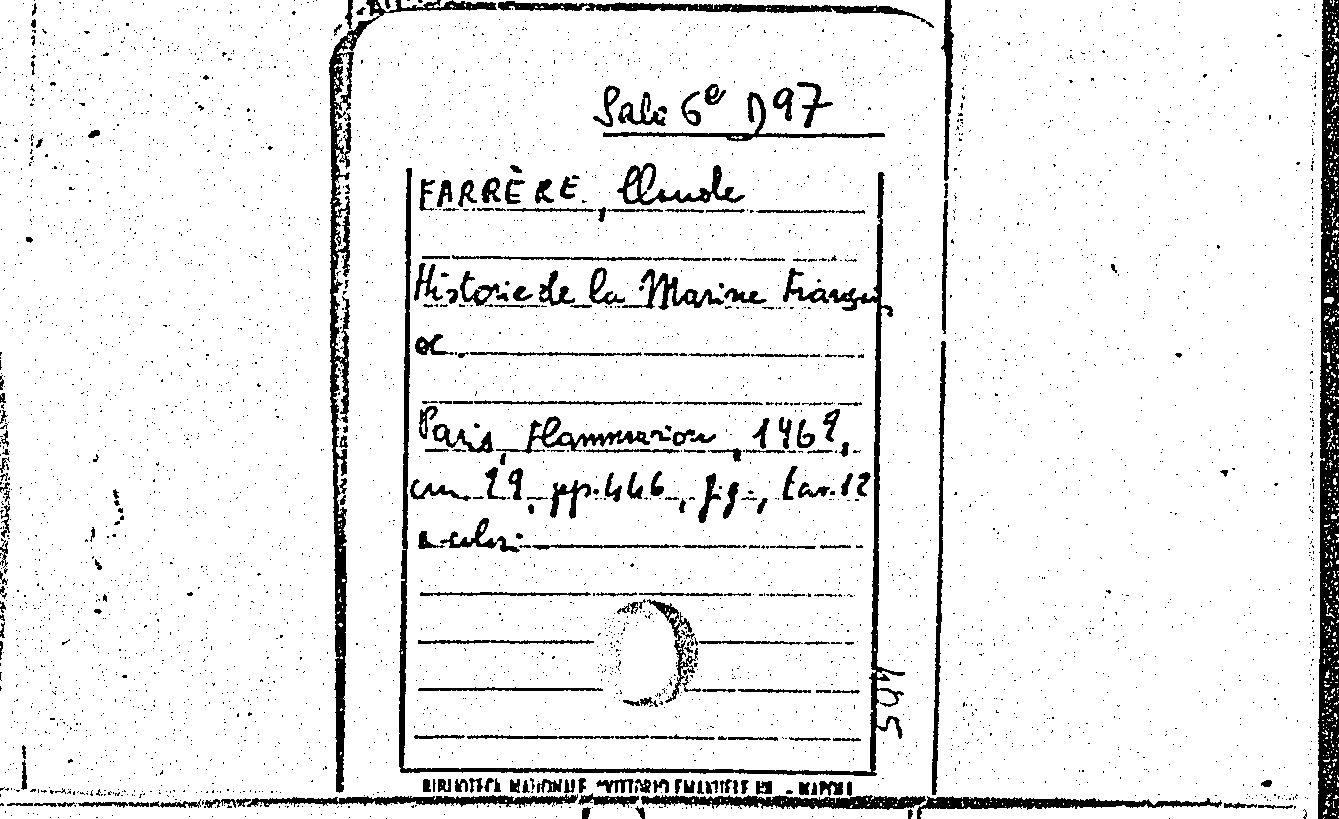 Sala 6ª D97
FARRÈRE, Claude
Histoire de la Marine Françai
se.
Paris, Flammarion, 1962,
cm. 29, pp. 446, fig., tav. 12
a colori
405
BIBLIOTECA NAZIONALE "VITTORIO EMANUELE III" - NAPOLI